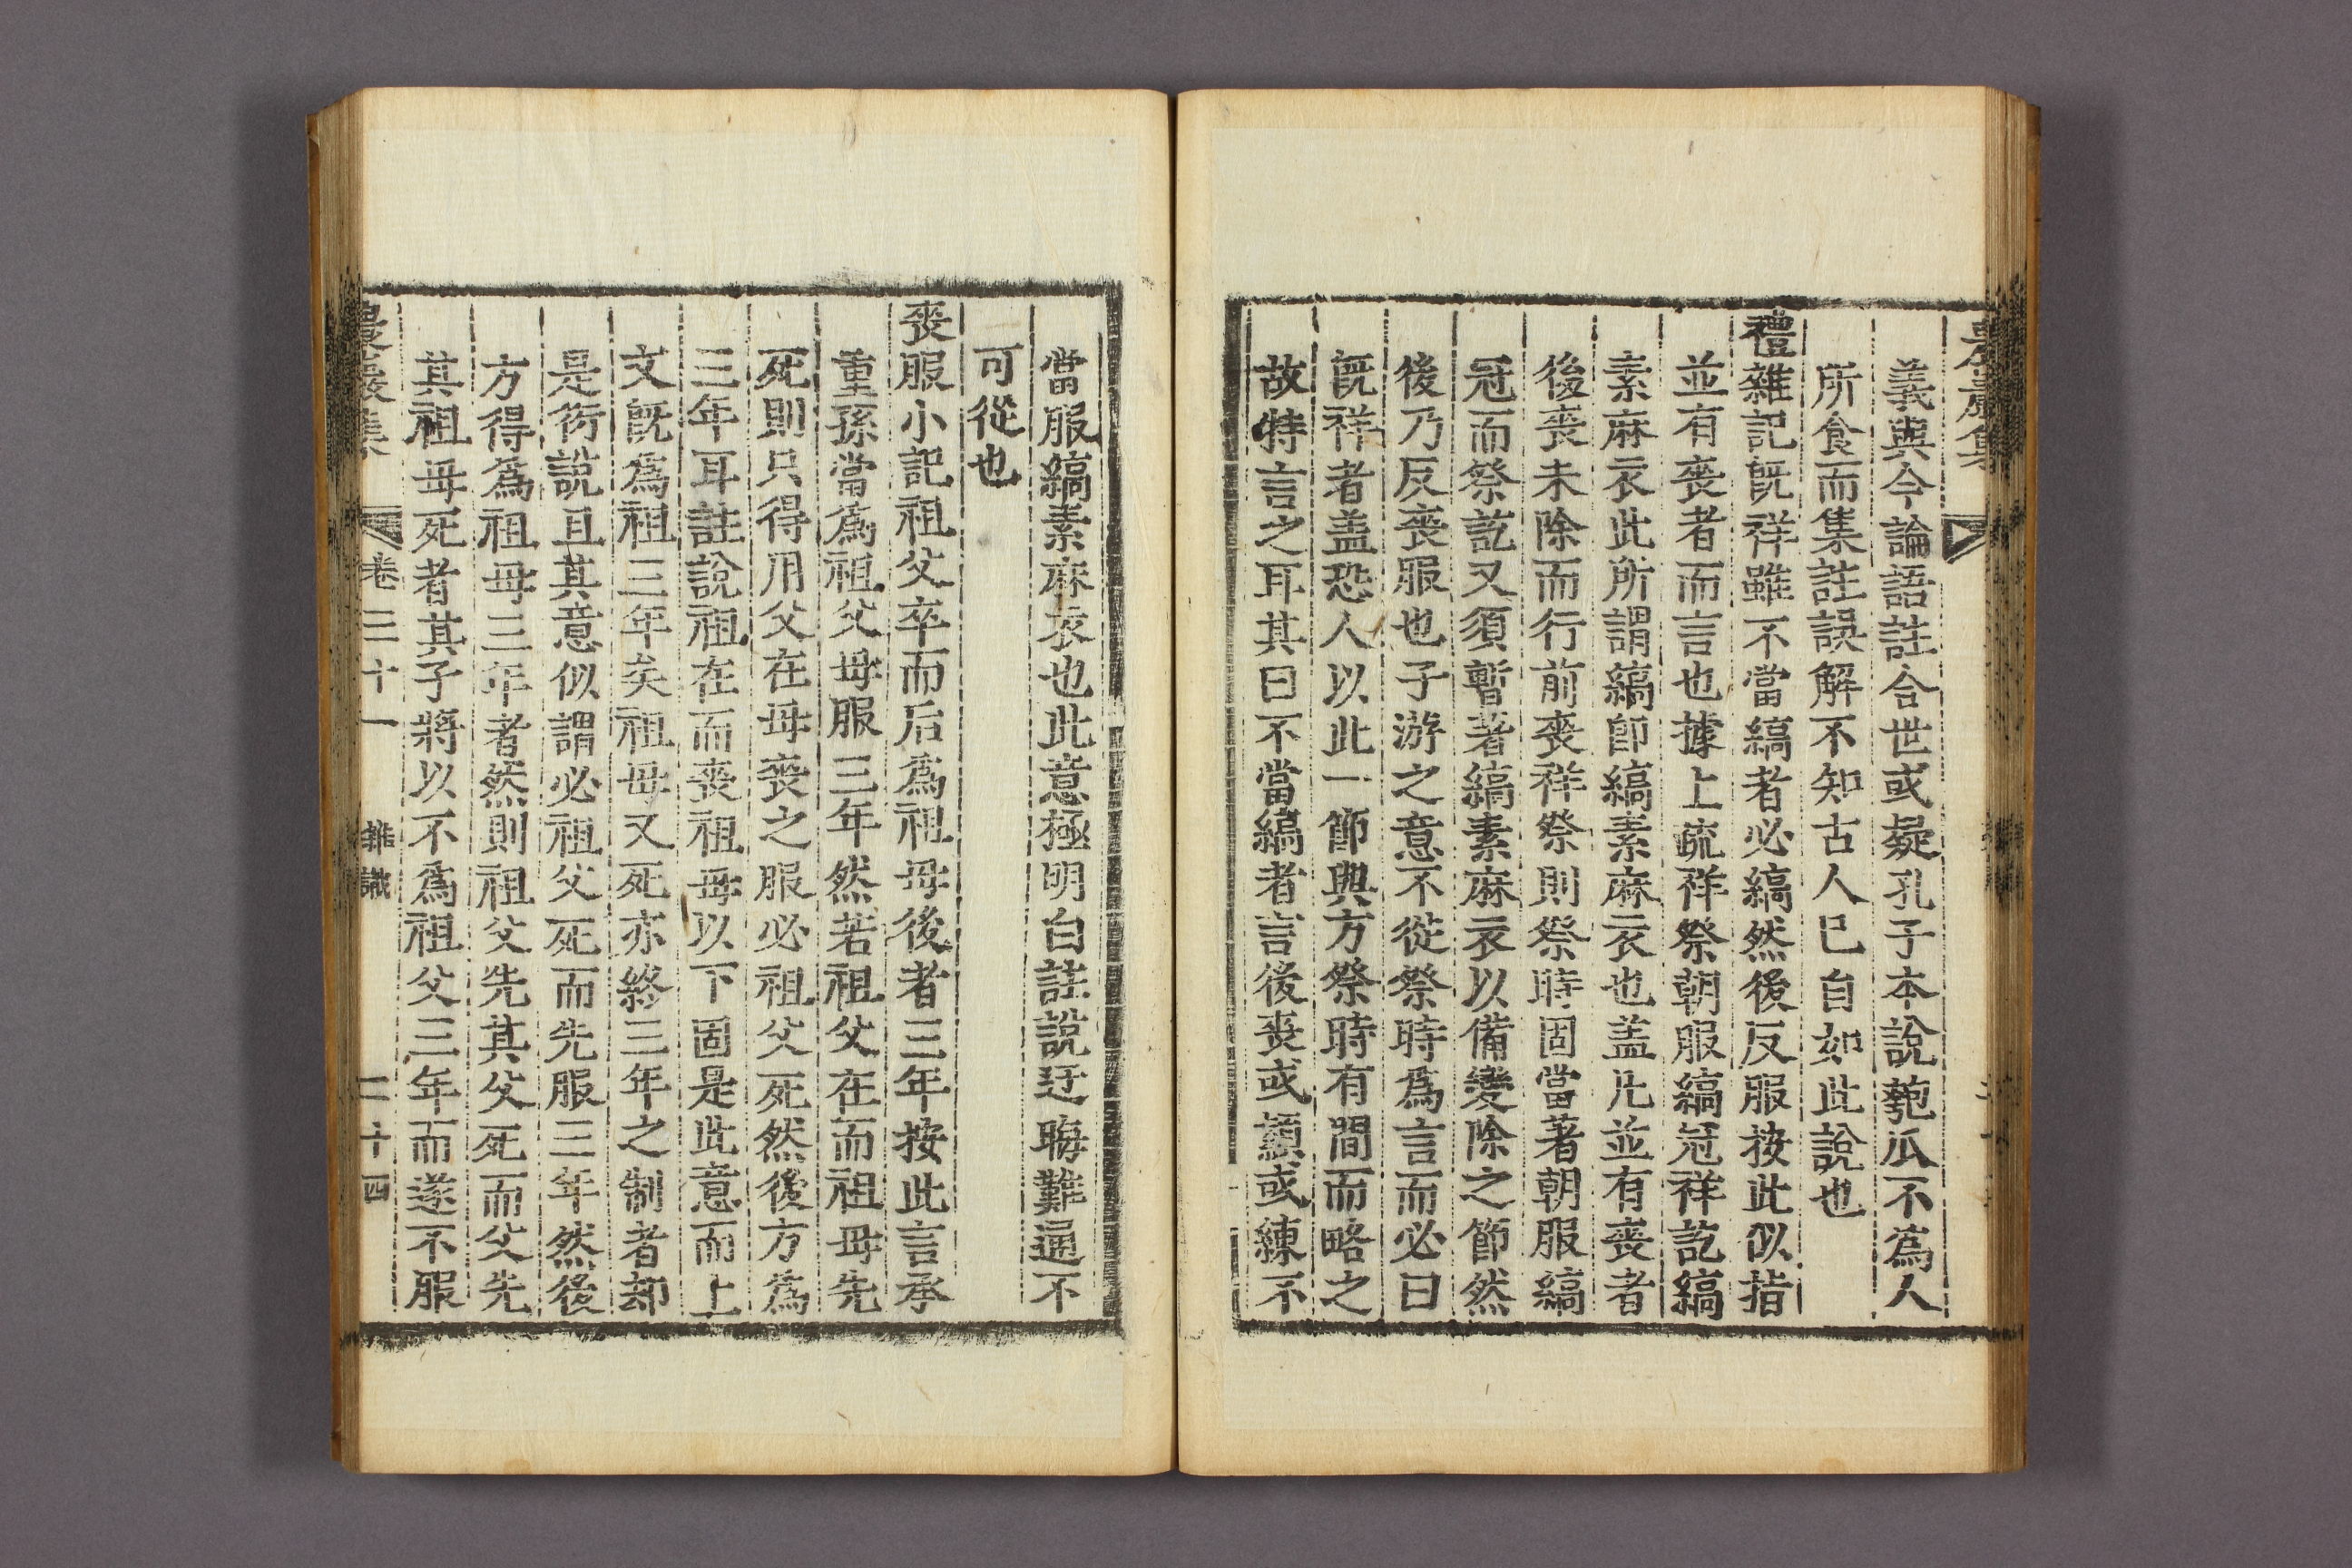 農巖集
義與今論語註合世或疑孔子本說匏瓜不爲人
所食而集註誤解不知古人已自如此說也
禮雜記旣祥雖不當縞者必縞然後反服按此似指
並有喪者而言也據上疏祥祭朝服縞冠祥訖縞
素麻衣此所謂縞卽縞素麻衣也盖凡並有喪者
後喪未除而行前喪祥祭則祭時固當著朝服縞
冠而祭訖又須暫著縞素麻衣以備變除之節然
後乃反喪服也子游之意不從祭時爲言而必曰
旣祥者盖恐人以此一節與方祭時有間而略之
故特言之耳其曰不當縞者言後喪或顈或練不
當服縞素麻衣也此意極明白註說迂晦難通不
可從也
喪服小記祖父卒而后爲祖母後者三年按此言承
重孫當爲祖父母服三年然若祖父在而祖母先
死則只得用父在母喪之服必祖父死然後方爲
三年耳註說祖在而喪祖母以下固是此意而上
文旣爲祖三年矣祖母又死亦終三年之制者却
是衍說且其意似謂必祖父死而先服三年然後
方得爲祖母三年者然則祖父先其父死而父先
其祖母死者其子將以不爲祖父三年而遂不服
農巖集 卷三十一 雜識 二十四